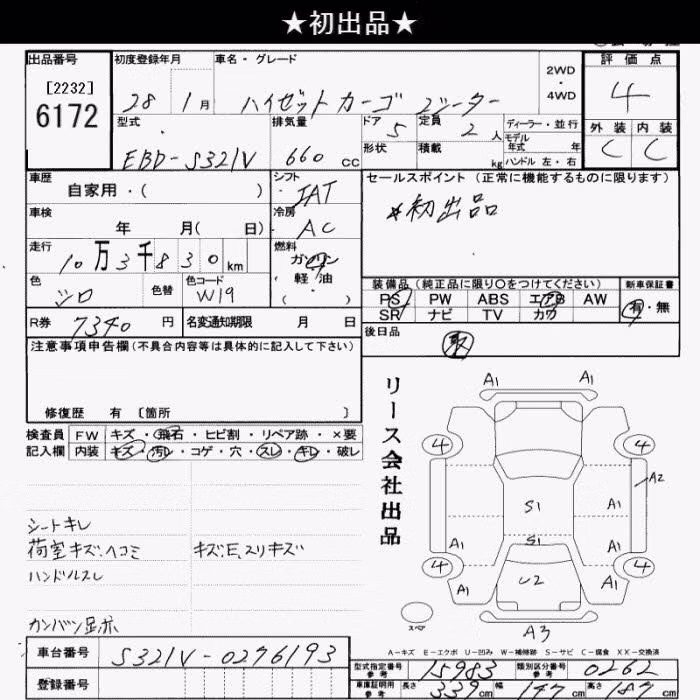 ★初出品★
出品番号 初度登録年月 車名・グレード 評価点
[2232] 2WD
6172 28 1月 ハイゼットカーゴ 2シーター 4WD 4
型式 排気量 ドア 5 定員 2人 ディーラー・並行 外装 内装
EBD-S321V 660 cc 形状 積載 kg モデル年式 年 C C
ハンドル 左・右
車歴 シフト セールスポイント(正常に機能するものに限ります)
自家用・( ) IAT ※初出品
車検 冷房
年 月( 日) AC
走行 燃料
10万3千830km ガソリン
軽油
( )
色 色替 色コード 装備品(純正品に限り○をつけてください) 新車保証書
シロ W19 PS PW ABS エアB AW 有・無
SR ナビ TV カワ
R券 7340円 名変通知期限 月 日 後日品
注意事項申告欄(不具合内容等は具体的に記入して下さい) 取
修復歴 有 〔箇所 〕
検査員 FW キズ・飛石・ヒビ割・リペア跡・×要
記入欄 内装 キズ・汚レ・コゲ・穴・スレ・キレ・破レ
リース会社出品
A1 A1
4 4
A2
S1 A1
A1 S1 A1
4 4
A1 U2 A1
スペア A3
シートキレ
荷室キズ、ヘコミ キズE、スリキズ
ハンドルスレ
A-キズ E-エクボ U-凹み W-補修跡 S-サビ C-腐食 XX-交換済
車台番号 S321V-0276193
型式指定番号 参考 15983 類別区分番号 参考 0262
登録番号 車庫証明用 参考 長さ 339cm 幅 147cm 高さ 187cm